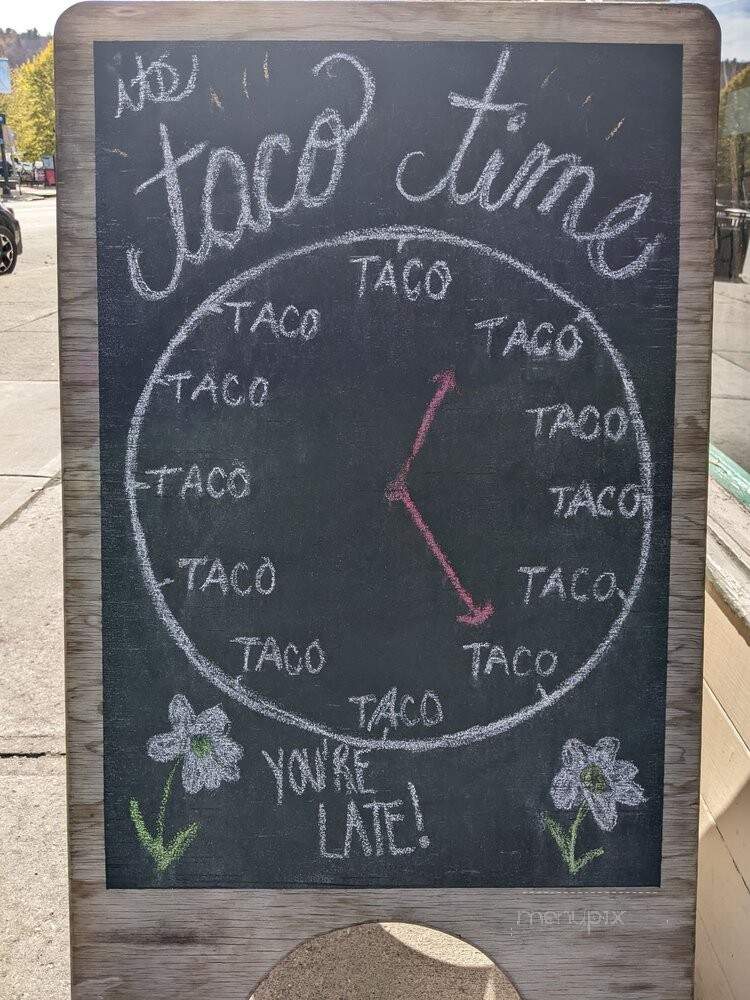 it's
taco time
TACO
TACO TACO
TACO TACO
TACO TACO
TACO TACO
TACO TACO
TACO
YOU'RE
LATE!
menupix